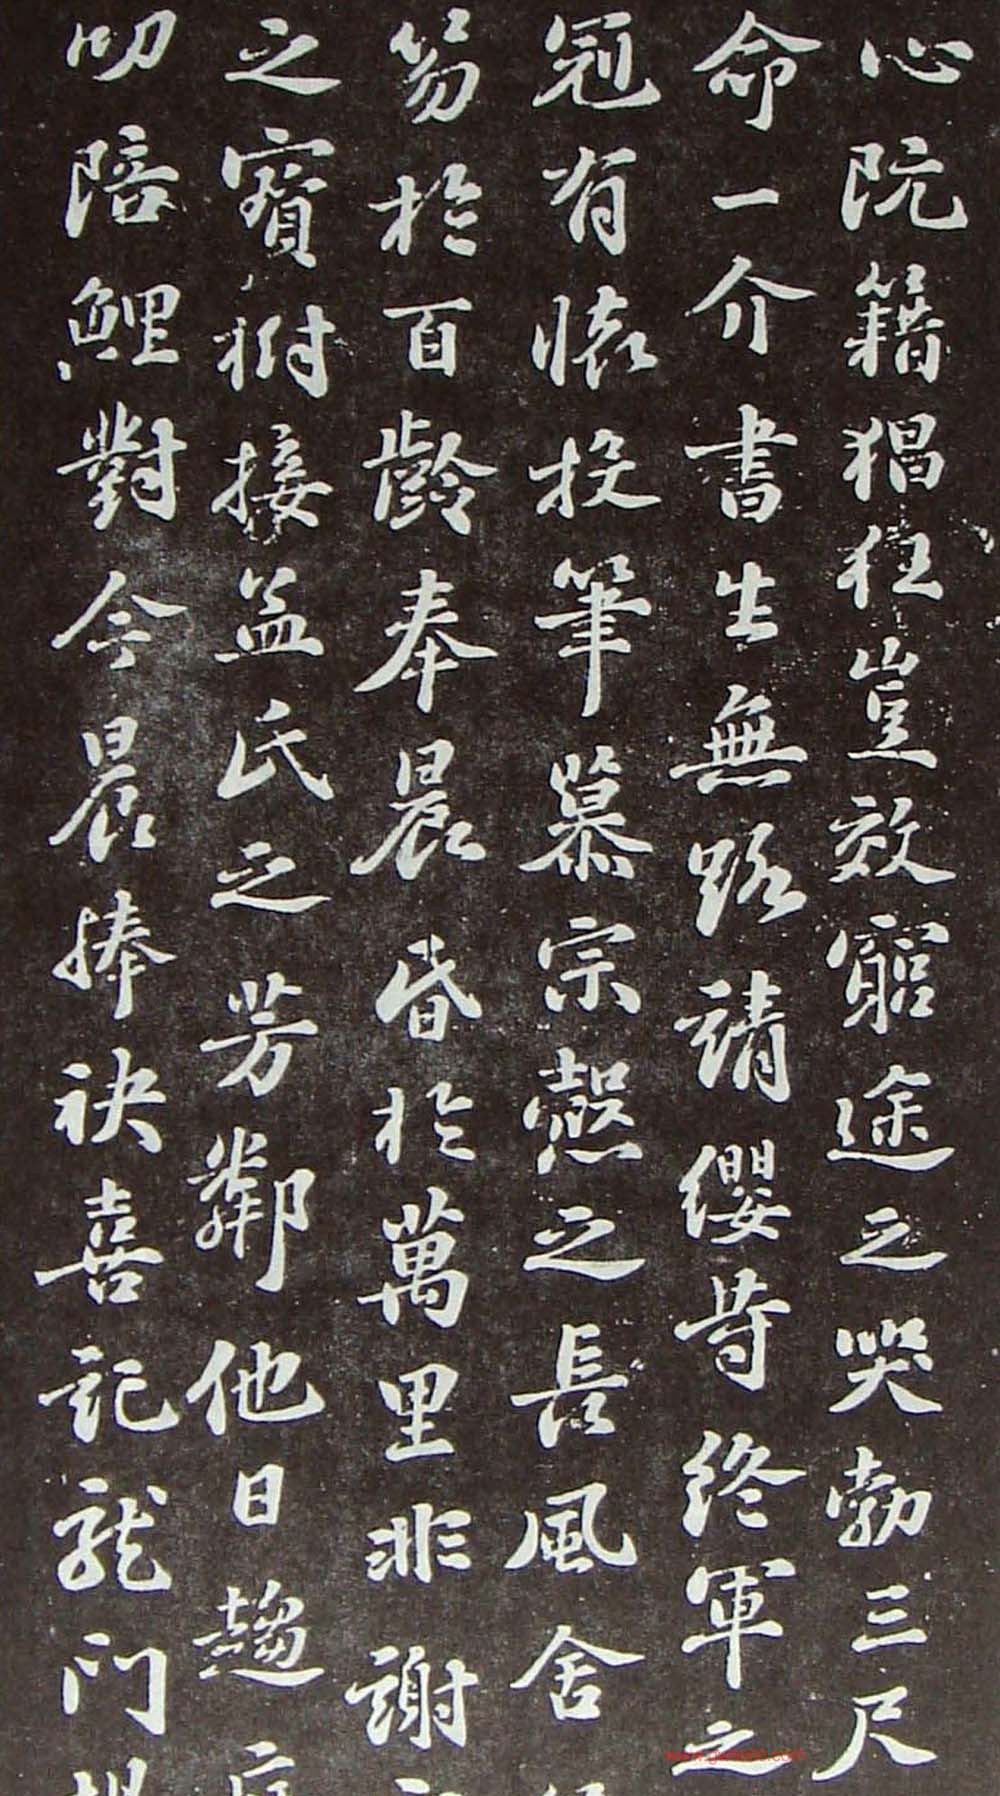 心阮籍猖狂豈效窮途之哭勃三尺
命一介書生無路請纓等終軍之
冠有懷投筆慕宗愨之長風舍
笏於百齡奉晨昏於萬里非謝
之寳樹接孟氏之芳鄰他日趨
叨陪鯉對今晨捧袂喜託龍門